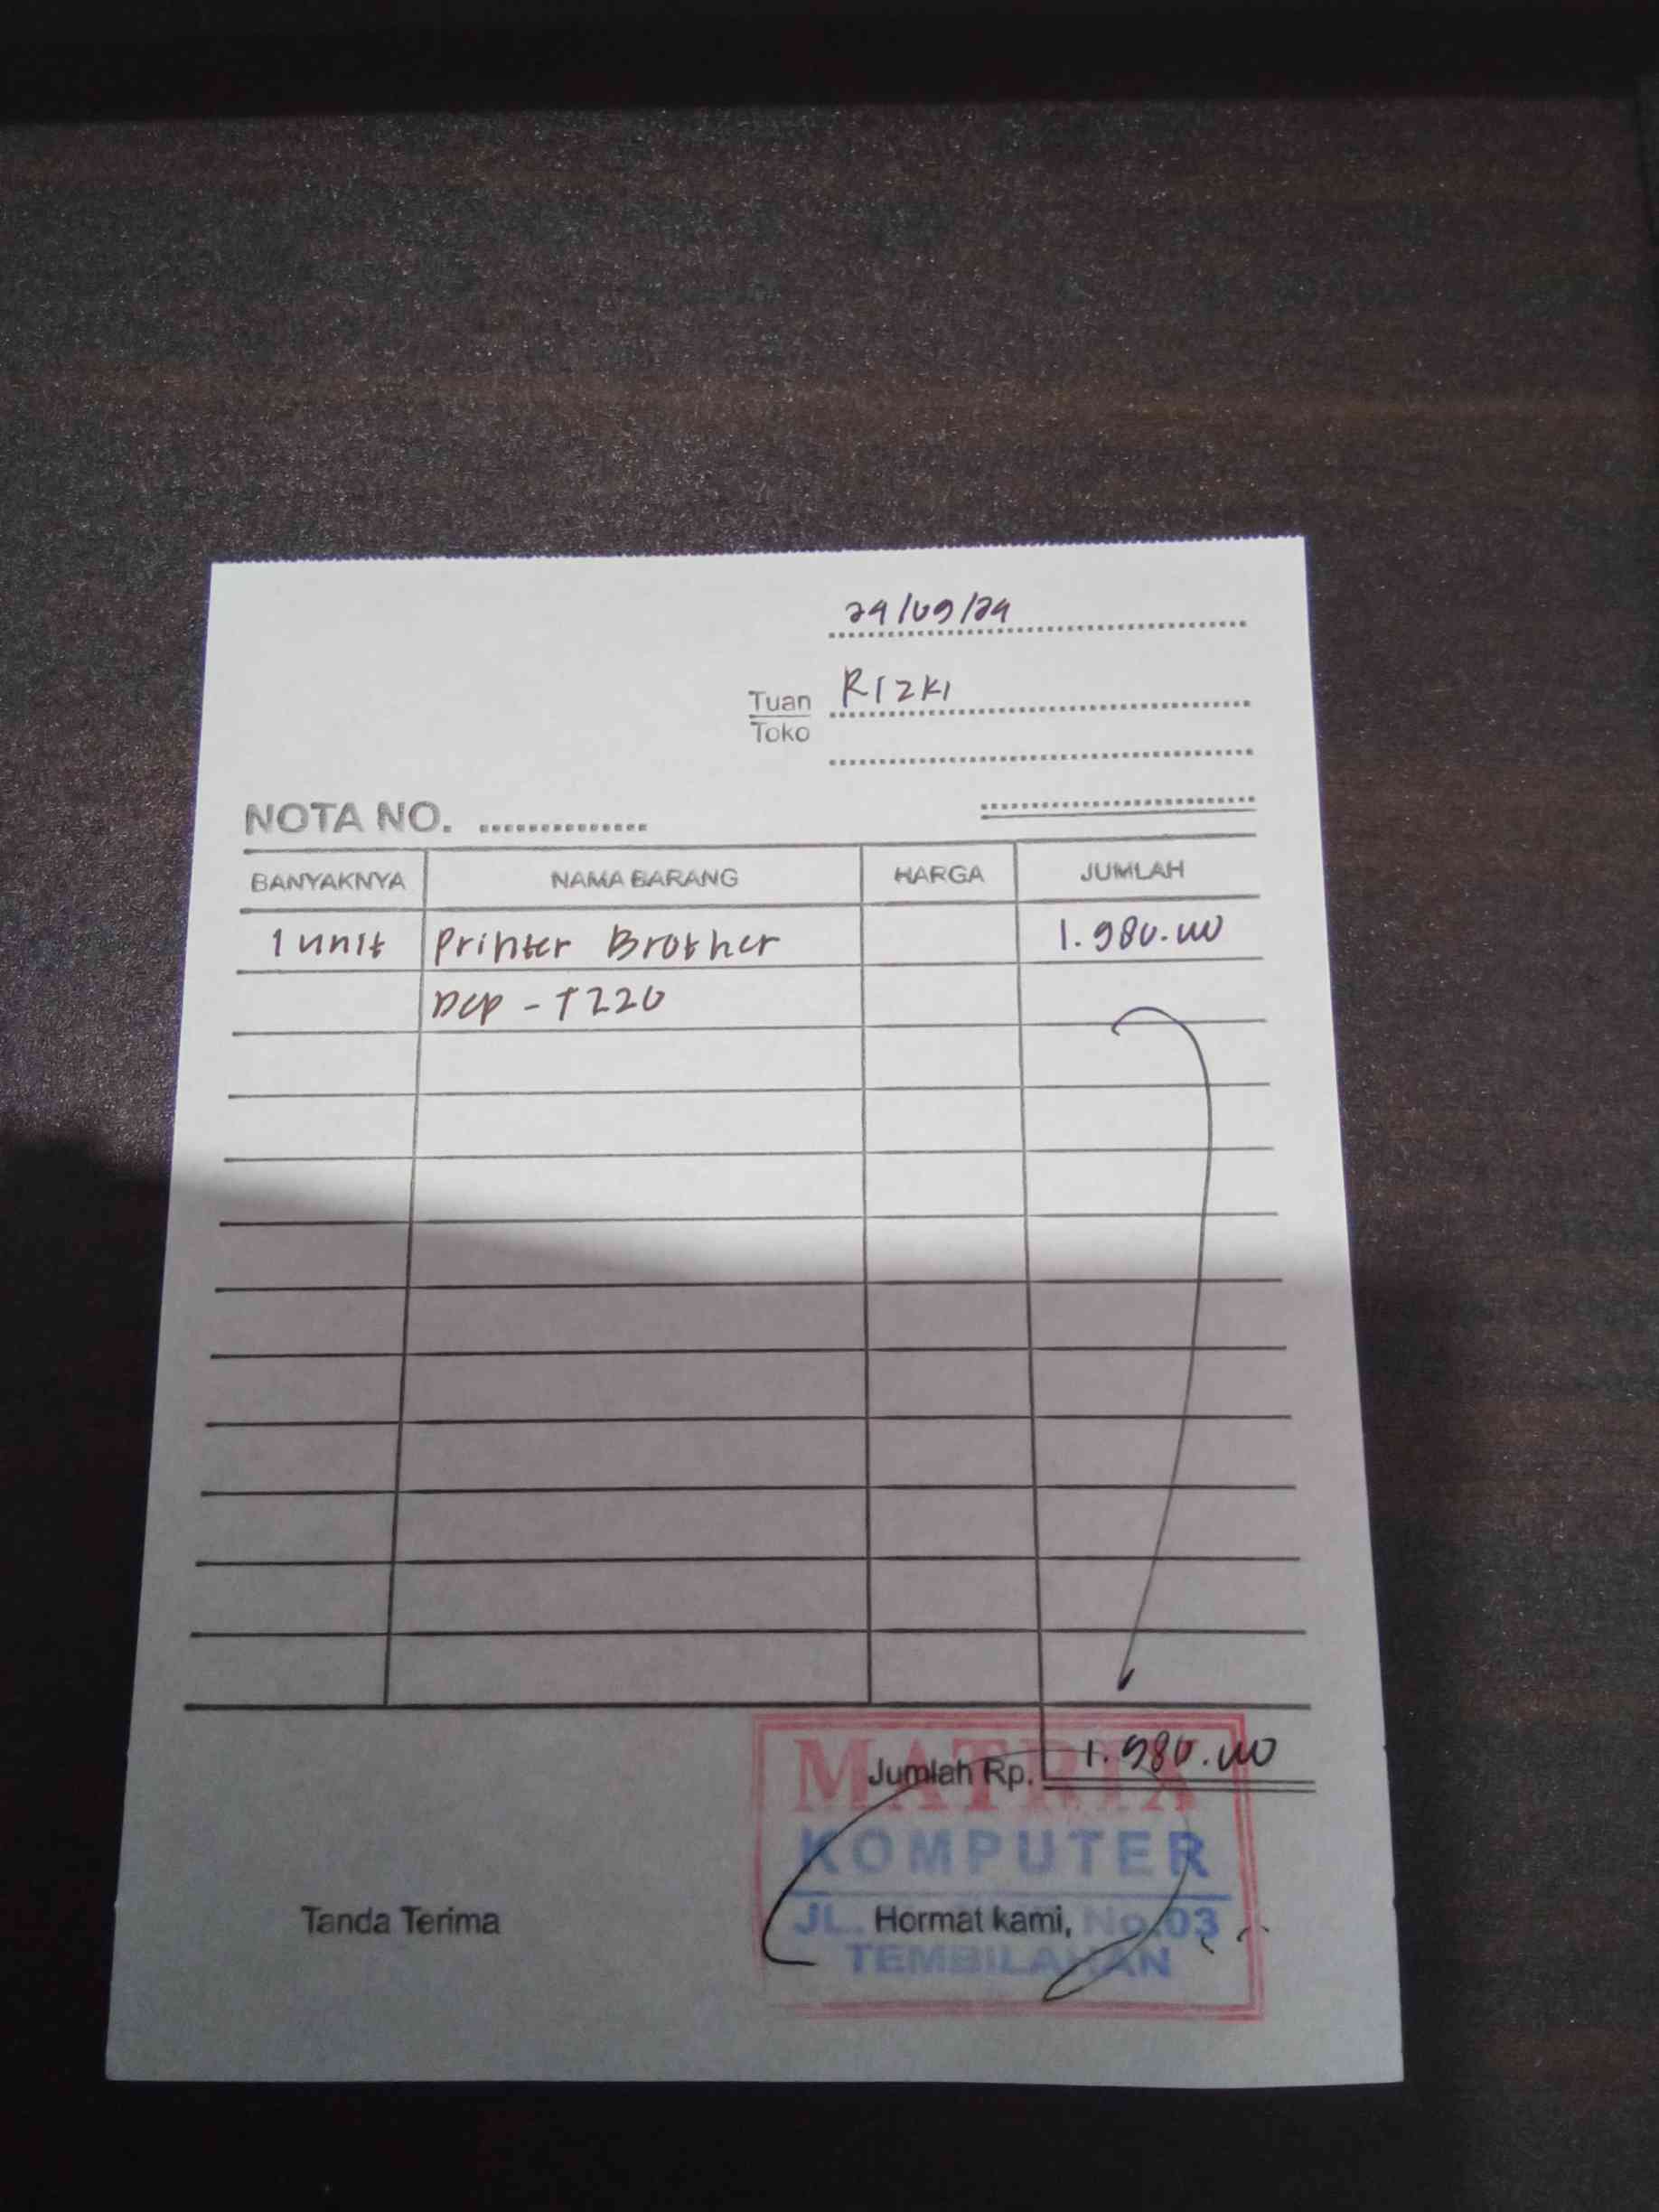 24/09/24
Tuan RIZKI
Toko
NOTA NO.
BANYAKNYA NAMA BARANG HARGA JUMLAH
1 unit Printer Brother 1.980.000
DCP - T220
Jumlah Rp. 1.980.000
MATRIX
KOMPUTER
JL. No.03
TEMBILAHAN
Tanda Terima Hormat kami,